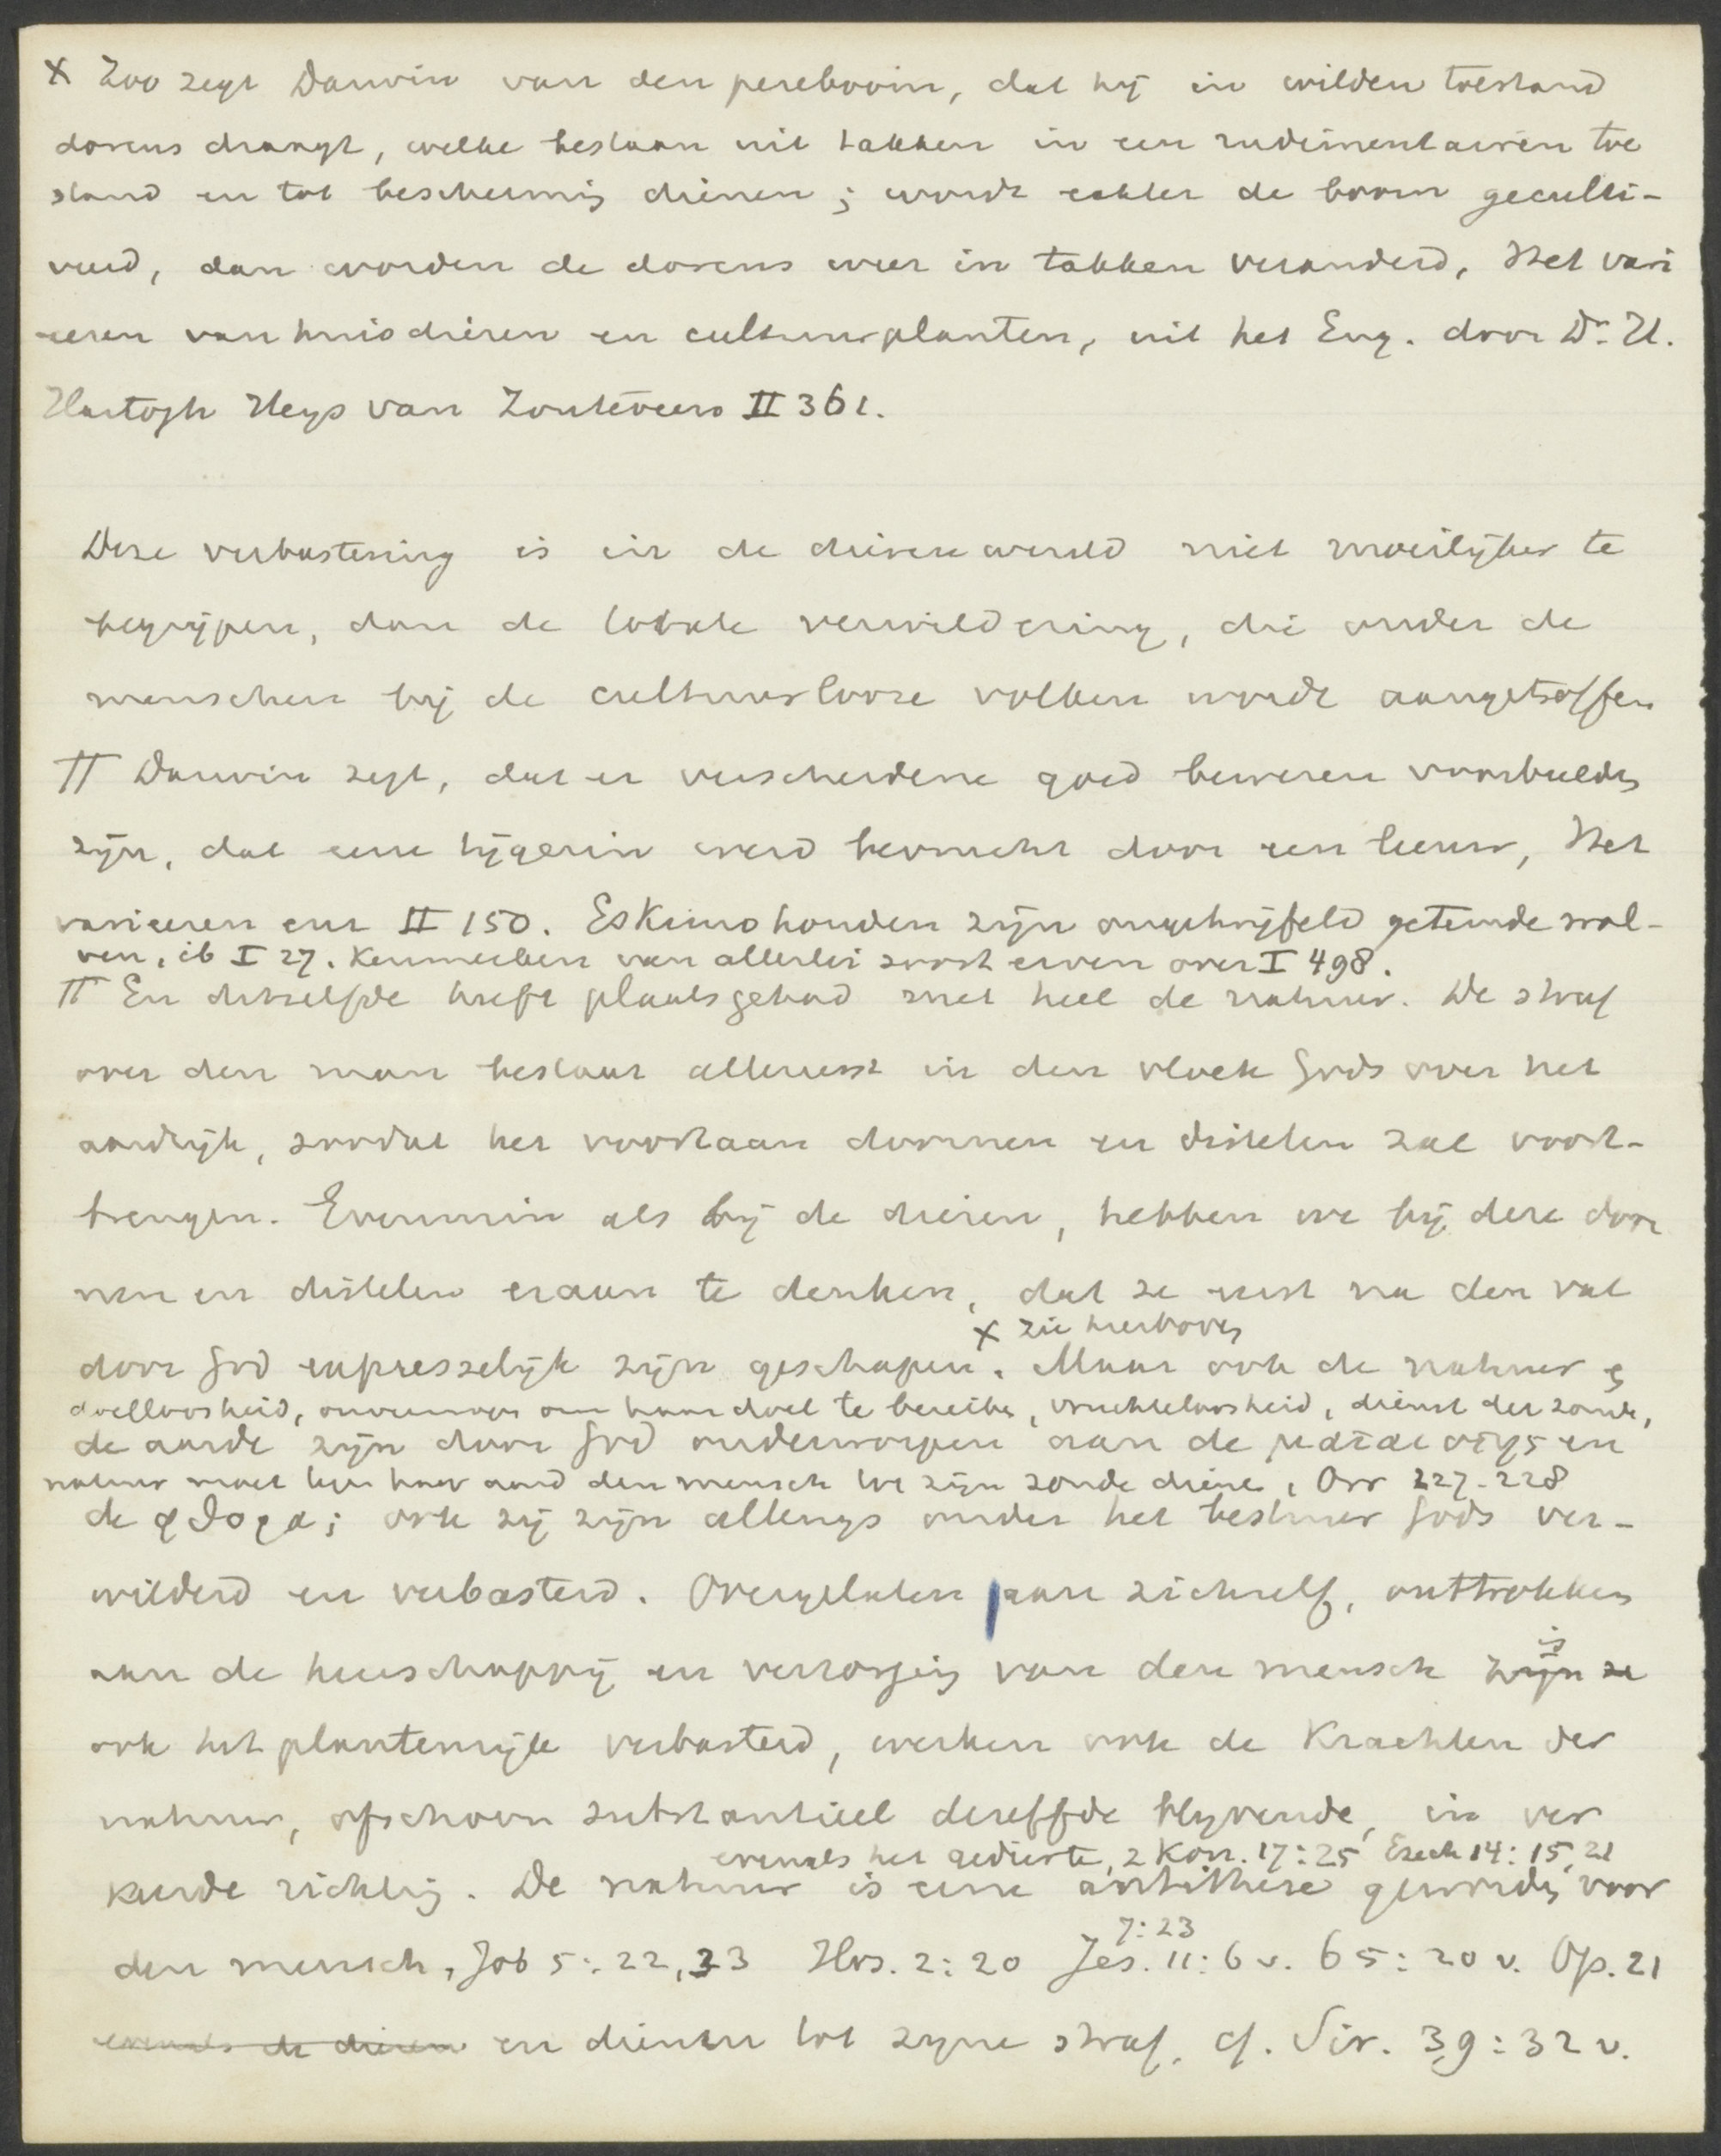 x Zoo zegt Darwin van den pereboom, dat hij in wilden toestand
dorens draagt, welke bestaan uit takken in een rudimentairen toe
stand en tot bescherming dienen; wordt echter de boom geculti-
veerd, dan worden de dorens weer in takken veranderd, Het vari
eeren van huisdieren en cultuurplanten, uit het Eng. door Dr. H.
Hartogh Heys van Zouteveen II 361.
Deze verbastering is in de dierenwereld niet moeilijker te
begrijpen, dan de totale verwildering, die onder de
menschen bij de cultuurlooze volken wordt aangetroffen
π Darwin zegt, dat er verscheidene goed bewezen voorbeelden
zijn, dat eene tijgerin werd bevrucht door een leeuw, Het
varieeren enz II 150. Eskimohonden zijn ongetwijfeld getemde wol-
ven, ib I 27. Kenmerken van allerlei soort erven over I 498.
π En hetzelfde heeft plaatsgehad met heel de natuur. De straf
over den man bestaat allereerst in den vloek Gods over het
aardrijk, zoodat het voortaan doornen en distelen zal voort-
brengen. Evenmin als bij de dieren, hebben we bij deze door
nen en distelen eraan te denken, dat ze eerst na den val
x zie hierboven
door God expresselijk zijn geschapen. Maar ook de natuur en
doelloosheid, onvermogen om haar doel te bereiken, vruchteloosheid, dienst der zonde,
de aarde zijn door God onderworpen aan de ματαιοτης en
natuur moet tegen haar aard den mensch tot zijn zonde dienen, Orr 227-228
de φθορα; ook zij zijn allengs onder het bestuur Gods ver-
wilderd en verbasterd. Overgelaten aan zichzelf, onttrokken
aan de heerschappij en verzorging van den mensch zijn ze is
ook het plantenrijk verbasterd, werken ook de krachten der
natuur, ofschoon substantieel dezelfde blijvende, in ver
evenals het gedierte, 2 Kon. 17:25 Ezech 14:15, 21
keerde richting. De natuur is eene antithese geworden voor
7:23
den mensch, Job 5:22,23 Hos. 2:20 Jes. 11:6 v. 65:20 v. Op. 21
evenals de dieren en dienen tot zijne straf, cf. Sir. 39:32 v.